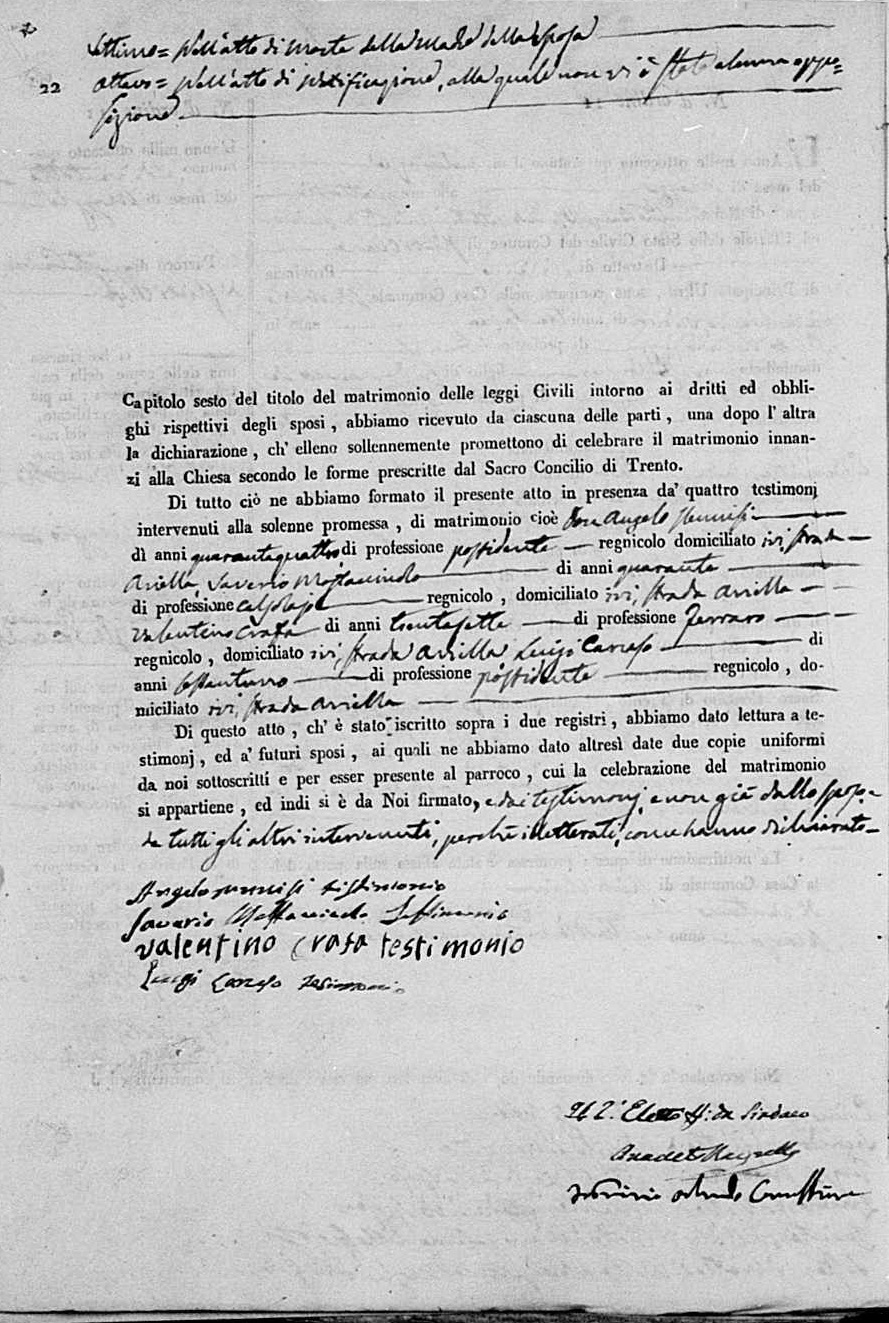 22
Settimo = Nell'atto di morte della Madre della Sposa
Ottavo = Nell'atto di notificazione, alla quale non vi è stata alcuna oppo=
sizione
Capitolo sesto del titolo del matrimonio delle leggi Civili intorno ai dritti ed obbli-
ghi rispettivi degli sposi, abbiamo ricevuto da ciascuna delle parti, una dopo l'altra
la dichiarazione, ch'elleno sollennemente promettono di celebrare il matrimonio innan-
zi alla Chiesa secondo le forme prescritte dal Sacro Concilio di Trento.
Di tutto ciò ne abbiamo formato il presente atto in presenza da' quattro testimonj
intervenuti alla solenne promessa, di matrimonio cioè Don Angelo
dì anni quarantaquattro di professione possidente regnicolo domiciliato ivi, strada
Ariella, Saverio di anni quaranta
di professione calzolajo regnicolo, domiciliato ivi, strada Ariella
Valentino Crafa di anni trentasette di professione Ferraro
regnicolo, domiciliato ivi, strada Ariella Luigi Caruso di
anni di professione possidente regnicolo, do-
miciliato ivi, strada Ariella
Di questo atto, ch'è stato iscritto sopra i due registri, abbiamo dato lettura a te-
stimonj, ed a' futuri sposi, ai quali ne abbiamo dato altresì date due copie uniformi
da noi sottoscritti e per esser presente al parroco, cui la celebrazione del matrimonio
si appartiene, ed indi si è da Noi firmato, e dai testimonj, e non già dallo sposo e
da tutti gli altri intervenuti, perchè illetterati, come hanno dichiarato
Angelo testimonio
Saverio testimonio
Valentino Crafa testimonio
Luigi Caruso testimonio
Il 2° Eletto ff: da Sindaco